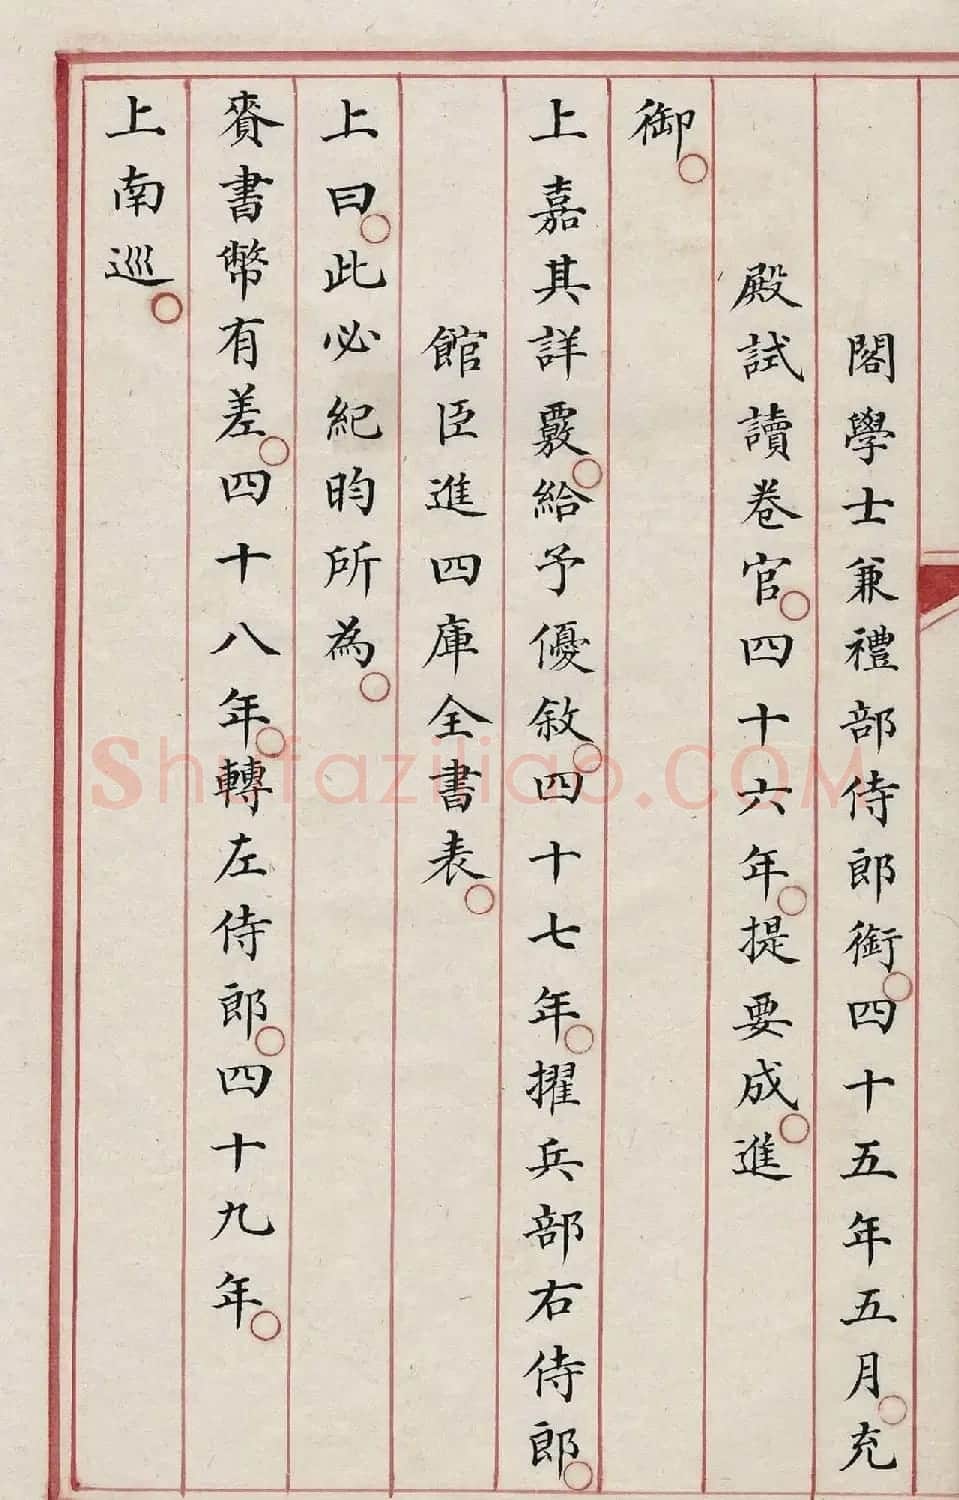 閣學士兼禮部侍郎銜○四十五年五月○充
殿試讀卷官○四十六年○提要成○進
御○
上嘉其詳覈○給予優敘○四十七年○擢兵部右侍郎○
館臣進四庫全書表○
上曰○此必紀昀所為○
賚書幣有差○四十八年○轉左侍郎○四十九年○
上南巡○
Shufaziliao.COM